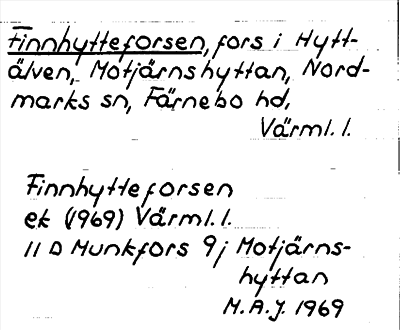 Finnhytteforsen, fors i Hytt-
älven, Motjärnshyttan, Nord-
marks sn, Färnebo hd,
Värml. l.
Finnhytteforsen
ek (1969) Värml. l.
11 D Munkfors 9j Motjärns-
hyttan
M.A.J. 1969